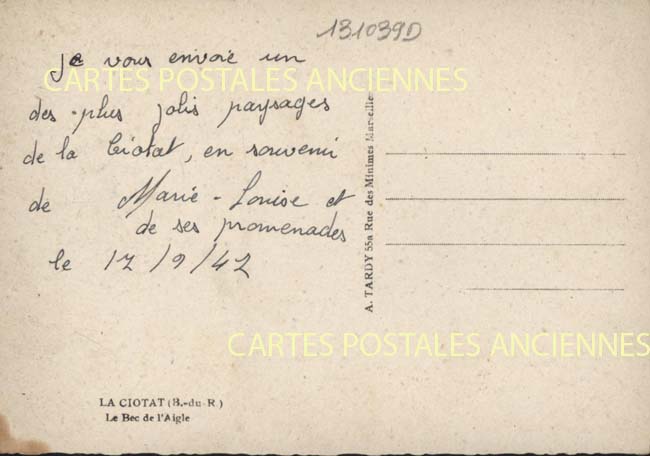 131039D
je vous envoie un
CARTES POSTALES ANCIENNES
des plus jolis paysages
de la Ciotat, en souvenir
de Marie-Louise et
de ses promenades
le 17/9/42
A. TARDY 55a Rue des Minimes Marseille
CARTES POSTALES ANCIENNES
LA CIOTAT (B.-du-R.)
Le Bec de l'Aigle